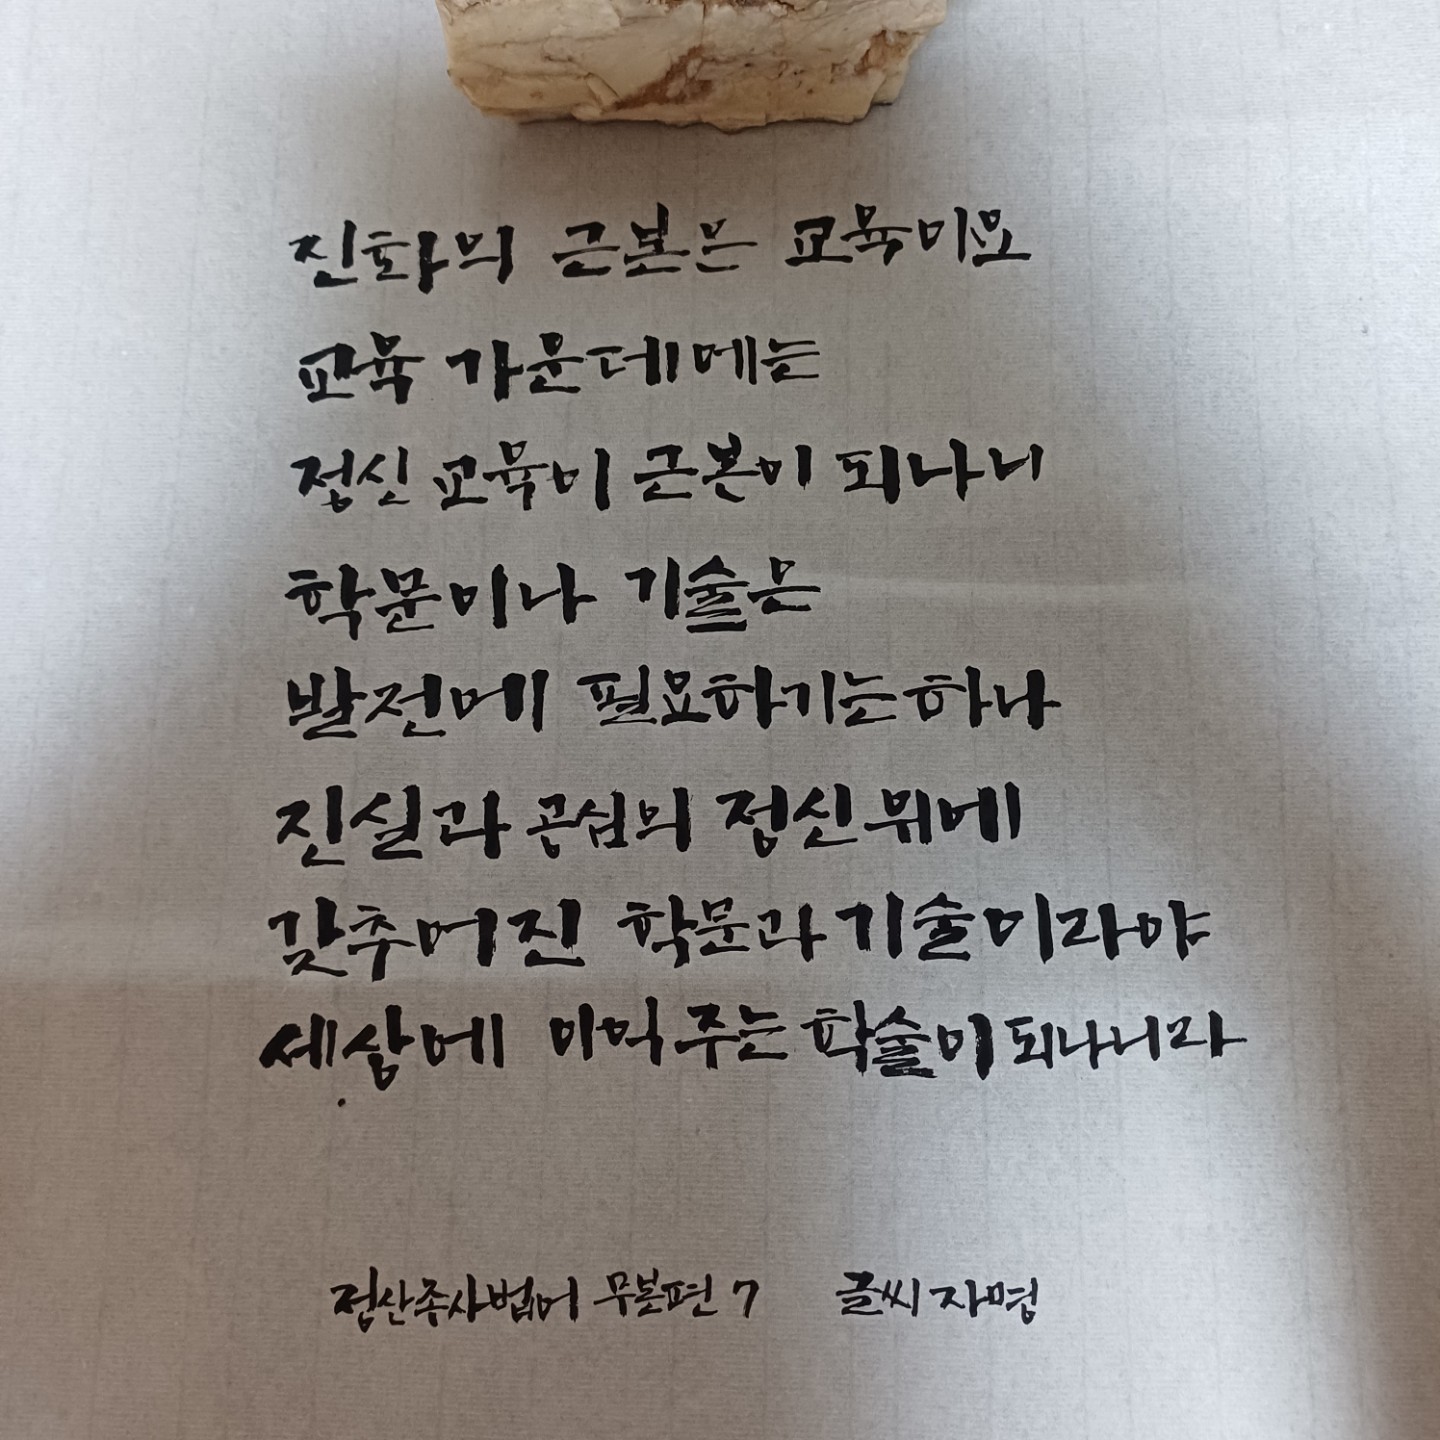 진화의 근본은 교육이요
교육 가운데에는
정신 교육이 근본이 되나니
학문이나 기술은
발전에 필요하기는 하나
진실과 공심의 정신 위에
갖추어진 학문과 기술이라야
세상에 이익 주는 학술이 되나니라
정산종사법어 무본편 7 글씨 자명